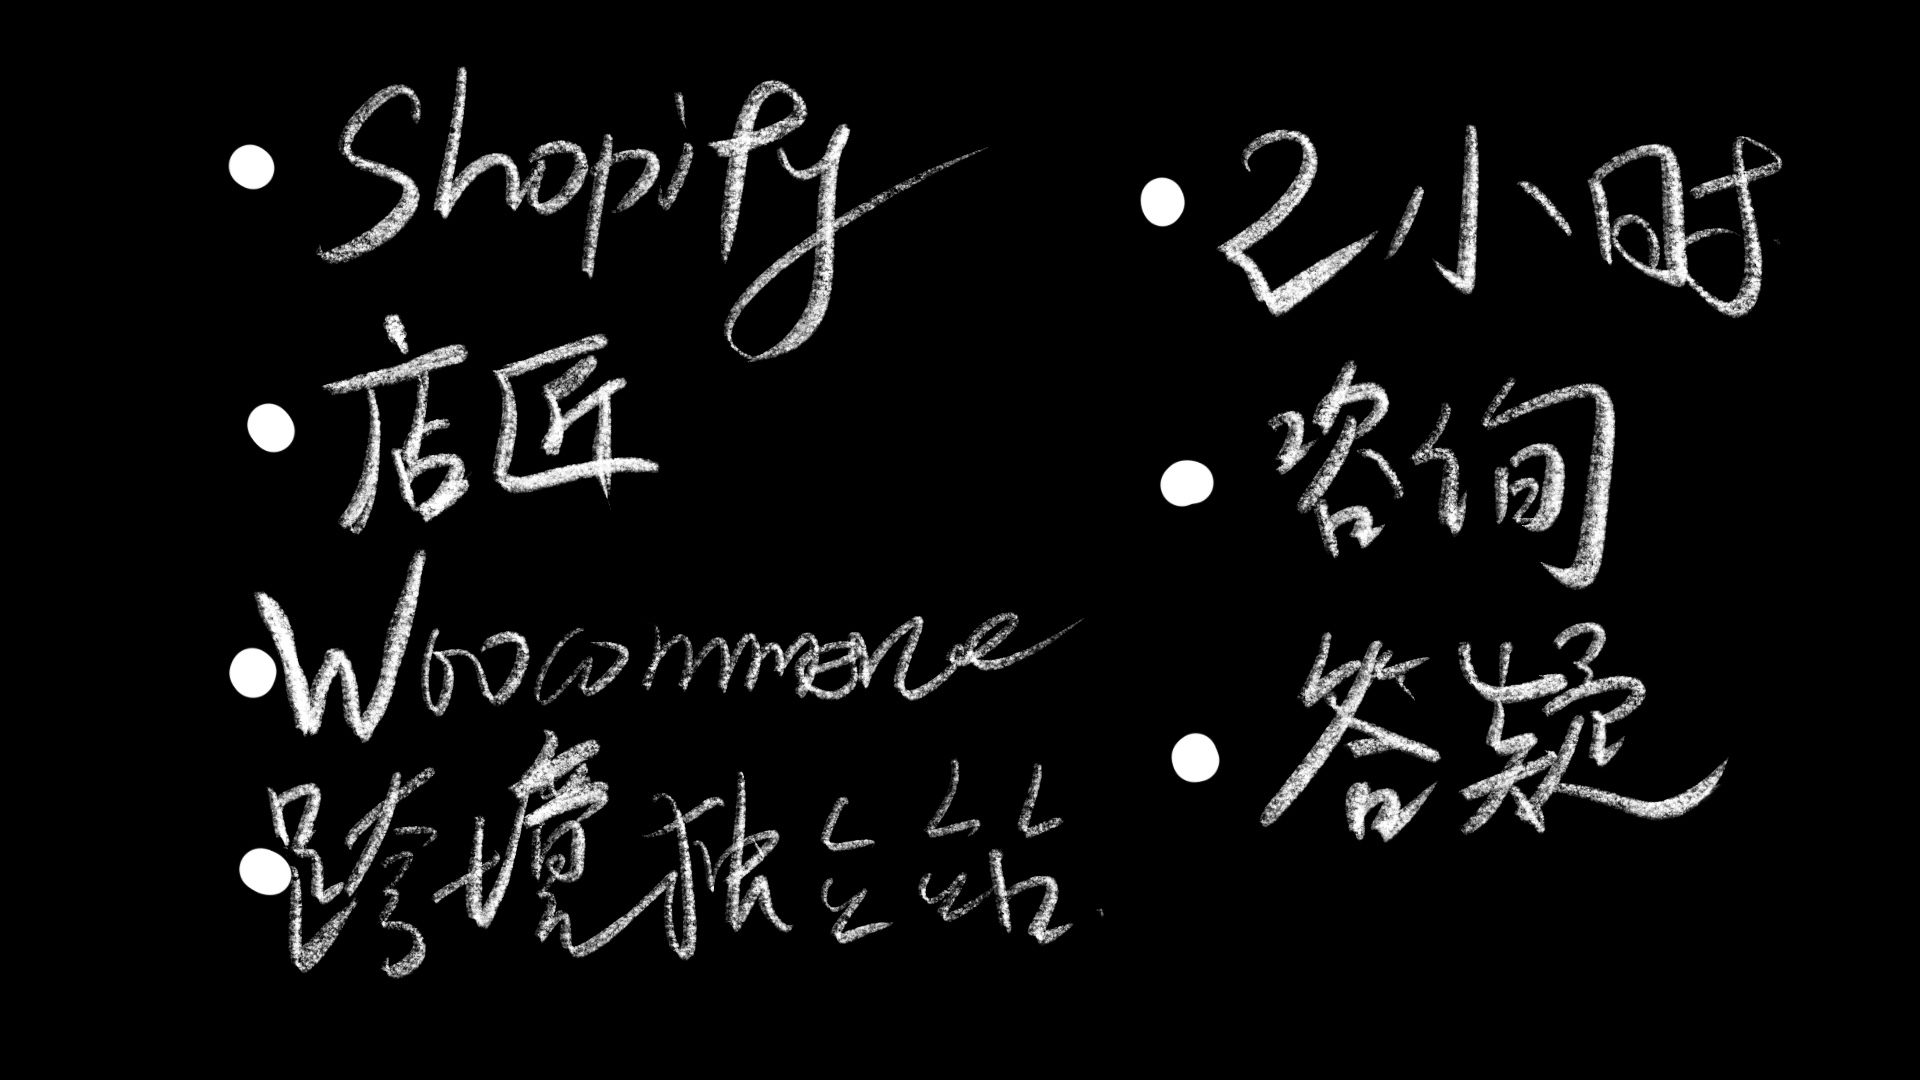 Shopify
店匠
Woocommerce
跨境独立站
2小时
咨询
答疑